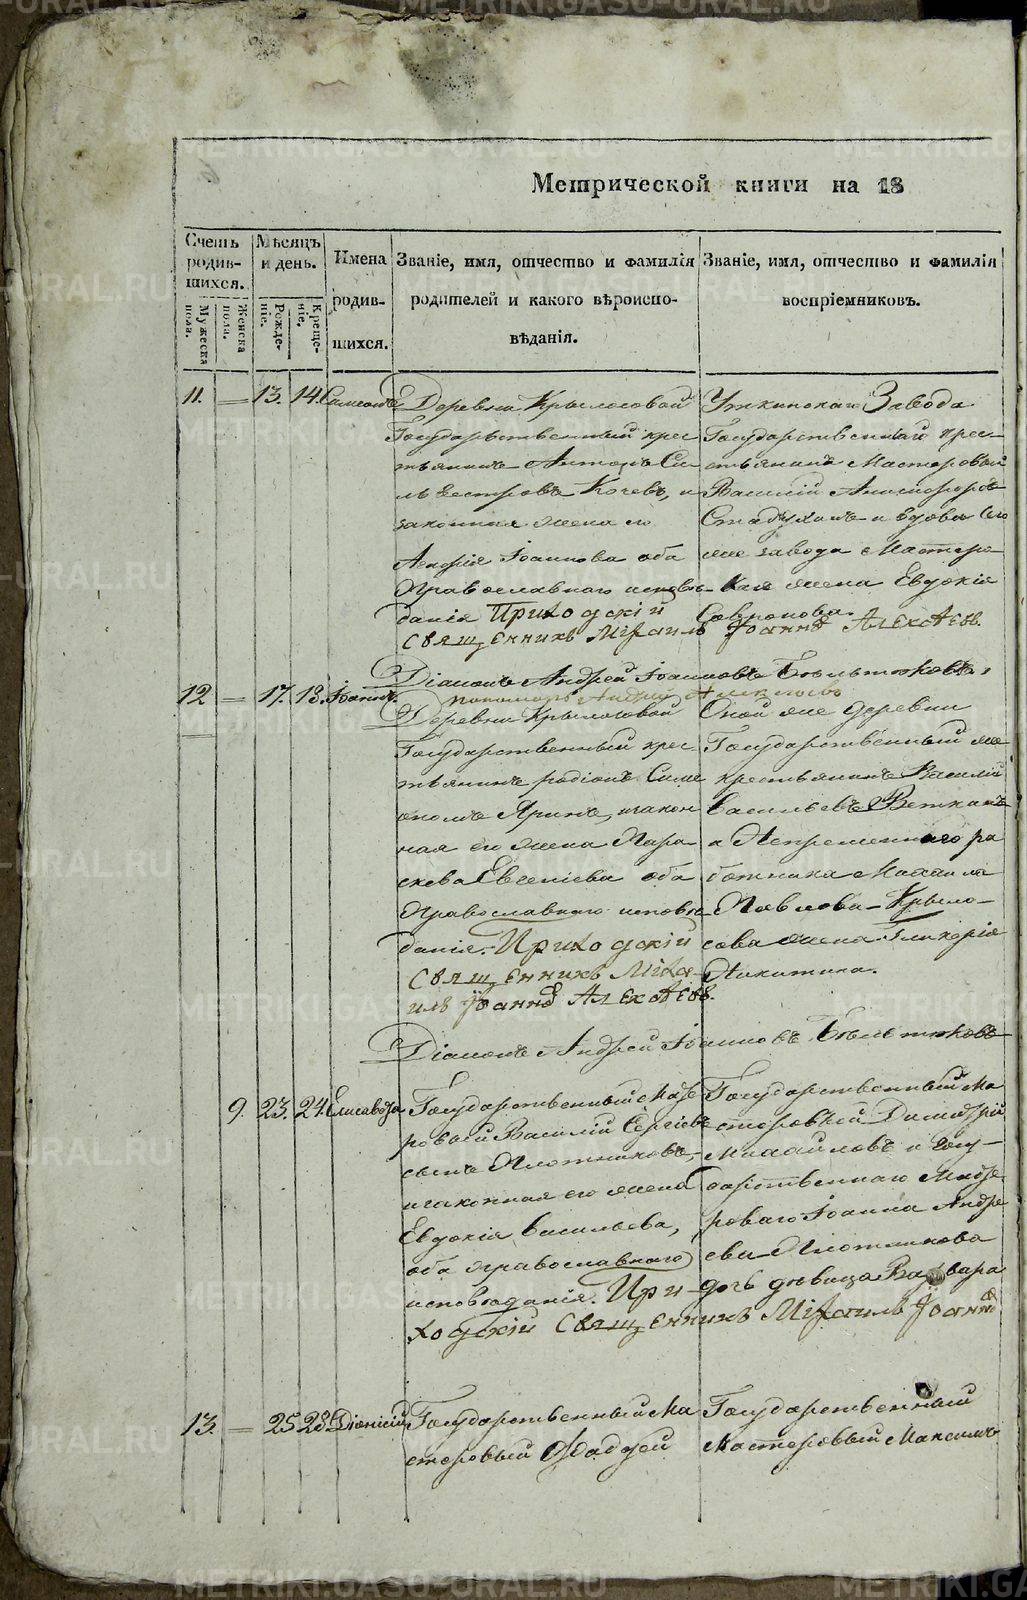 METRIKI.GASO-URAL.RU
Метрической книги на 18
Счетъ родив-шихся.
Мужеска пола.
Женска пола.
Мѣсяцъ и день.
Рожде-ніе.
Креще-ніе.
Имена родив-шихся.
Званіе, имя, отчество и фамилія
родителей и какого вѣроиспо-
вѣданія.
Званіе, имя, отчество и фамилія
воспріемниковъ.
11. — 13. 14.
Деревни Крылосовой
Государственный крес
тьянинъ Антонъ Си
львестровъ Кочевъ, и
законная жена его
Іоаннова оба
Православнаго исповѣ-
данія Приходскій
Священникъ Міхаилъ Іоаннов Алексѣевъ.
Уткинскаго Завода
Государственнаго крес-
тьянина Мастеровой
Василій
и вдова того
же завода Мастеро-
жена Евдокія
Діаконъ Андрей Іоанновъ Бѣльтюковъ,
пономарь Андрей Алексѣевъ
12 — 17. 18. Іоаннъ.
Деревни Крылосовой
Государственный крес
тьянинъ родіонъ Симе
оновъ Яринъ, и закон
ная его жена Пара
скева Евгеніева оба
Православнаго исповѣ
данія. Приходскій
Священникъ Міха-
илъ Іоаннов Алексѣевъ.
Оной же деревни
Государственный же
крестьянинъ Василій
Васильевъ Вяткинъ
и Непременнаго ра
ботника Михаила
Павлова Крыло-
сова жена Гликерія
Никитина.
Діаконъ Андрей Іоанновъ Бѣльтюковъ
9. 23. 24. Елисавета
Государственный Масте
ровый Василій Сергіевъ
сынъ Плотниковъ,
и законная его жена
Евдокія Васильева,
оба православнаго
исповѣданія. При
ходскій Священникъ Міхаилъ Іоаннов
Государственный Ма
стеровой Димитрій
Михайловъ и Госу-
дарственнаго Масте
роваго Іоанна Андре
ева Плотникова
дочь девица Варвара
13. — 25 28. Діонисій
Государственный Ма
стеровый Фаддей
Государственный
Мастеровый Максимъ